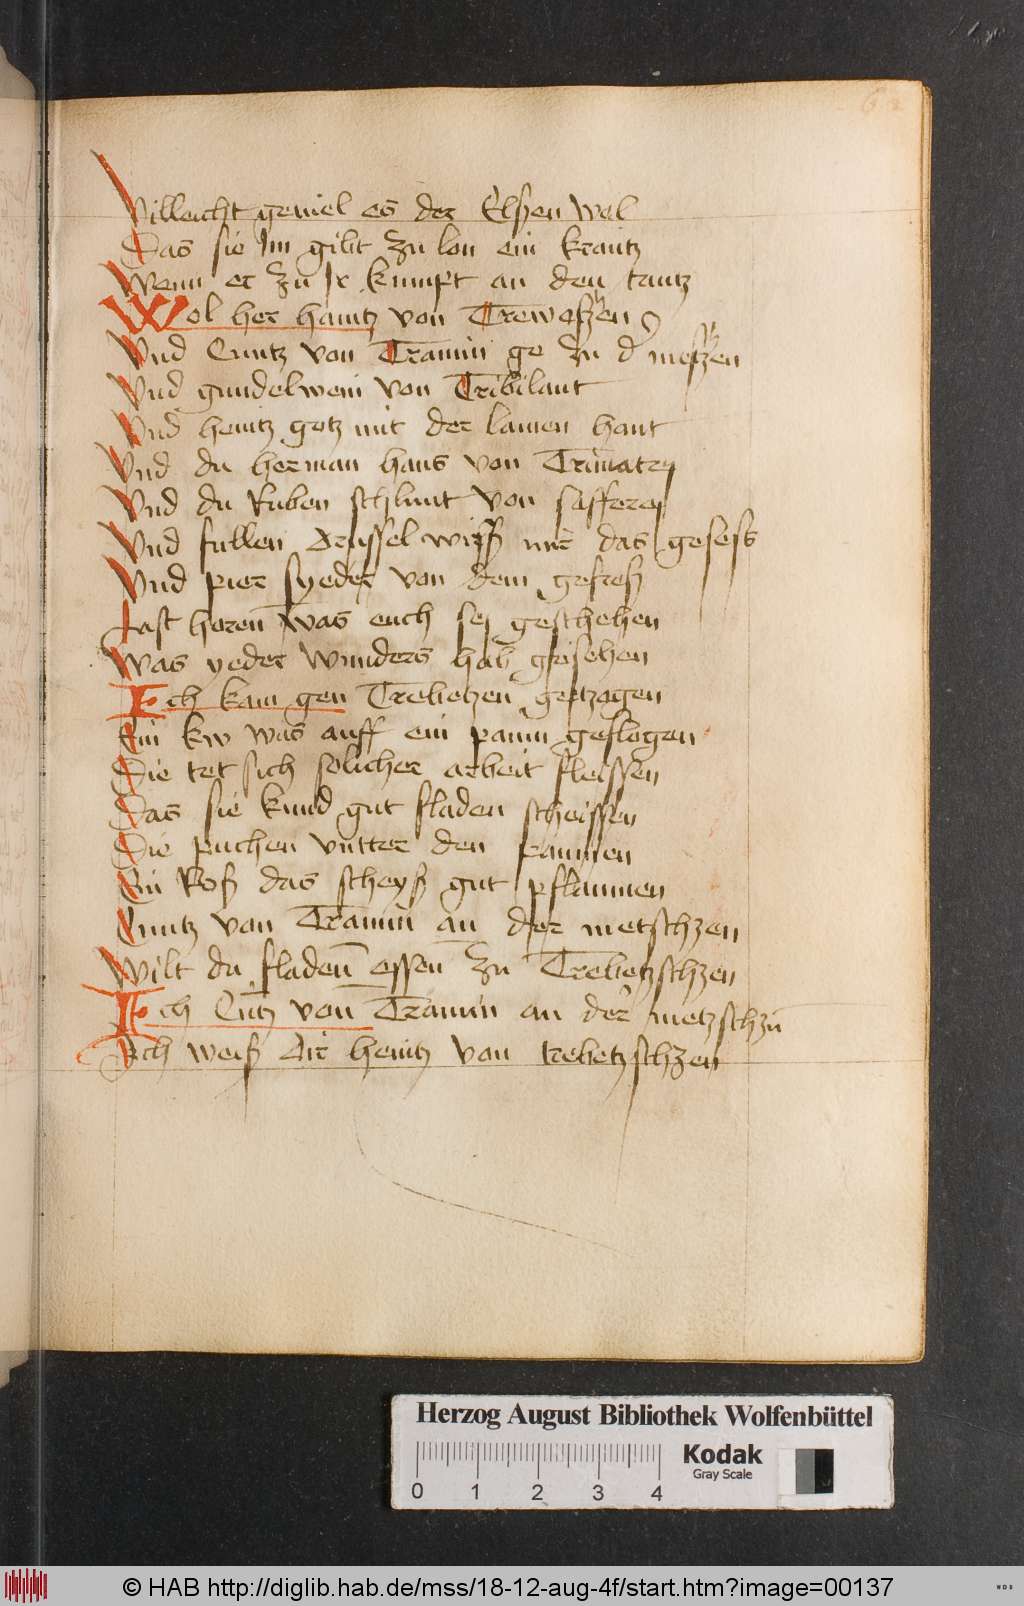 62
Villeicht geuiel es der Elszen wol
Das sie Im gibt zu lon ein krantz
Wenn er zu Ir kumpt an den tantz
Wol her haintz von Trewetzen
Vnd Cuntz von Tramin ge zu d metzen
Vnd gundelwein von Tribilant
Vnd heintz gotz mit der lamen hant
Vnd du herman hans von Trimatzy
Vnd du Ruben schlunt von safferey
Vnd fullen drussel wisß mir das geseß
Vnd pier syeder von dem gefreß
Last horen was euch sej geschehen
Was yeder wunders hab gesehen
Ich kam gen Trebetzen getzogen
Ein kw was auff ein paum geflogen
Die tet sich solicher arbeit fleissen
Das sie kund gut fladen scheissen
Die puchen vntter den paumen
Ein Roß das scheyß gut pflaumen
Cuntz von Tramin an der metschzen
Wilt du fladen essen zu Trebetzschzen
Ich Cūtz von Tramin an der metzschzū
Ich weiß dir heintz von trebetzschzen
Herzog August Bibliothek Wolfenbüttel
Kodak
Gray Scale
0 1 2 3 4
© HAB http://diglib.hab.de/mss/18-12-aug-4f/start.htm?image=00137